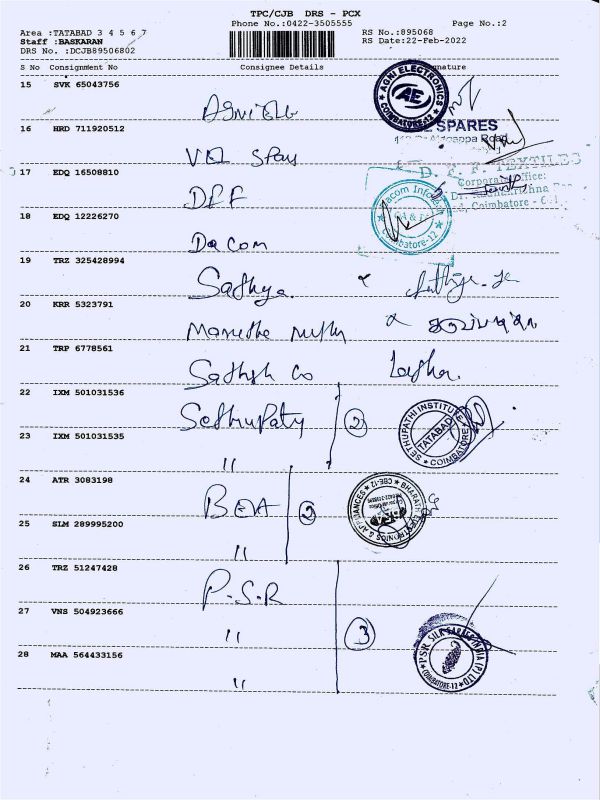 TPC/CJB DRS - PCX
Phone No.:0422-3505555
Page No.:2
Area :TATABAD 3 4 5 6 7
Staff :BASKARAN
DRS No. :DCJB89506802
RS No.:895068
RS Date:22-Feb-2022
S No Consignment No Consignee Details
15 SVK 65043756
AGNI ELECTRONICS
COIMBATORE-12
AE
16 HRD 711920512
SPARES
17 EDQ 16508810
DFF
D. F. F. TEXTILES
Corporate Office:
Coimbatore
18 EDQ 12226270
Dacom
Coimbatore-12
19 TRZ 325428994
Sathya
20 KRR 5323791
21 TRP 6778561
Sathish Co
22 IXM 501031536
Sethupaty 2
SETHUPATHI INSTITUTE
TATABAD
COIMBATORE
23 IXM 501031535
"
24 ATR 3083198
BEA 2
BHARATH ELECTRONICS & APPLIANCES
CBE-12
25 SLM 289995200
"
26 TRZ 51247428
P.S.R
27 VNS 504923666
" 3
PSR SILK SAREES INDIA (P) LTD
COIMBATORE-12
28 MAA 564433156
"